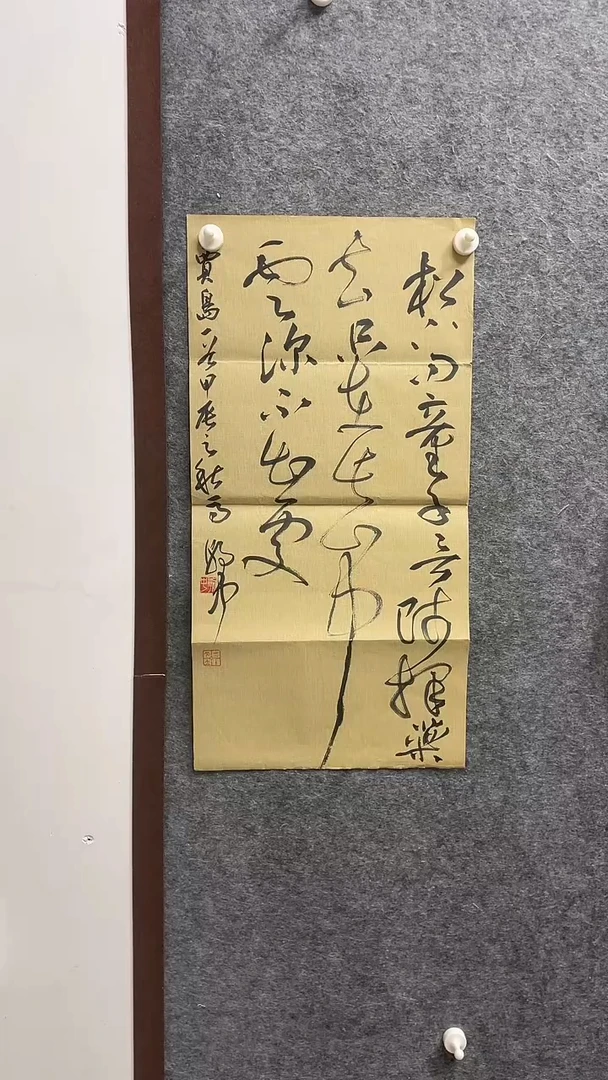 松下問童子言師採藥
去只在此山中
雲深不知處
賈島一首甲辰之秋